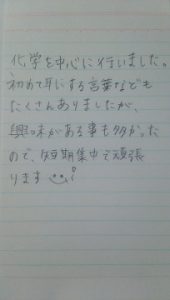 化学を中心に行いました。
初めて耳にする言葉なども
たくさんありましたが、
興味がある事も多かった
ので、短期集中で頑張
ります